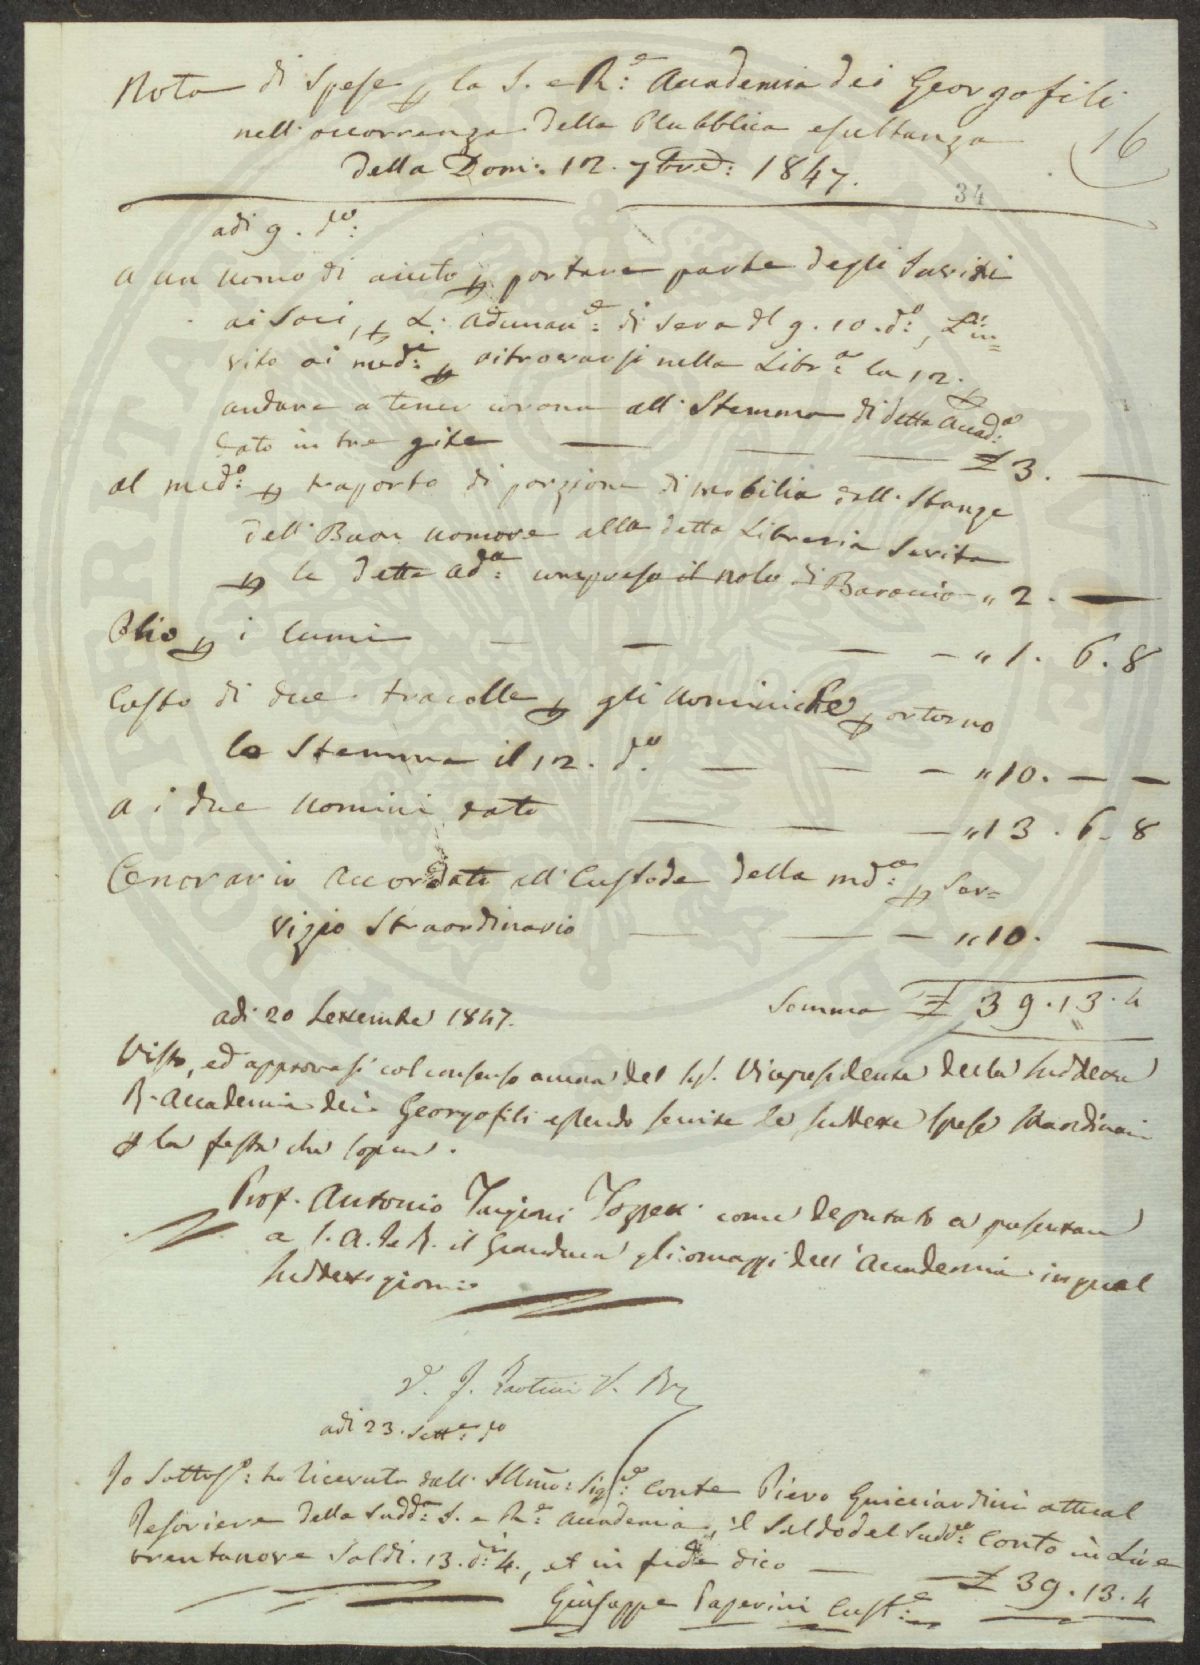 Nota di Spese p la I. e R.e Accademia dei Georgofili
nell'occorrenza della Plubblica esultanza
della Dom: 12. 7bre: 1847.
16
34
adi 9. do:
a un uomo di aiuto p portare parte degli Inviti
ai Soci, p L' Adunanz.e di Sera dl 9. 10. do:, L'in=
vito ai med.i p ritrovarsi nella Libr.a la 12. p
andare a tener corona all' Stemma di detta Accad.a
dato in tre gite £ 3. —
al med.o p traporto di porzione di mobilia dall. Stanze
dell' Buon umore alla detta Libreria Invita
p la detta Ad.a compreso il nolo di Baroccio " 2. —
Olio p i lumi " 1. 6. 8
Costo di due tracolle p gli Uomini che portorno
lo Stemma il 12. do. " 10. — —
a i due Uomini dato " 13. 6. 8
L'enorario accordato all' Custode della md.a p Ser=
vizio Straordinario " 10. —
Somma £ 39. 13. 4
adi 20 Settembre 1847.
Visto, ed approvasi col consenso ancora del Sig. Vicepresidente della suddetta
R. Accademia dei Georgofili essendo servite le suddette spese straordinarie
p la festa che sopra.
Prof. Antonio Targioni Tozzetti come deputato a presentare
a S. A. I. e R. il Granduca gli omaggi dell' Accademia in qual
suddetto giorno
adi 23. Sett.e do
Io Sottos.o: ho ricevuto dall. Illmo: Sig.re Conte Piero Guicciardini attual
Tesoriere della Sudd.a I. e R.e Accademia, il Saldo del Sudd.o Conto in Lire
trentanove Soldi. 13. d.i 4., et in fede dico £ 39. 13. 4
Giuseppe Paperini Cust.e